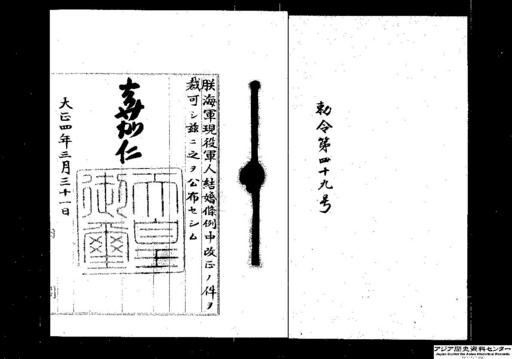 勅令第四十九号
朕海軍現役軍人結婚條例中改正ノ件ヲ
裁可シ茲ニ之ヲ公布セシム
嘉仁
天皇
御璽
大正四年三月三十一日
アジア歴史資料センター
Japan Center for Asian Historical Records